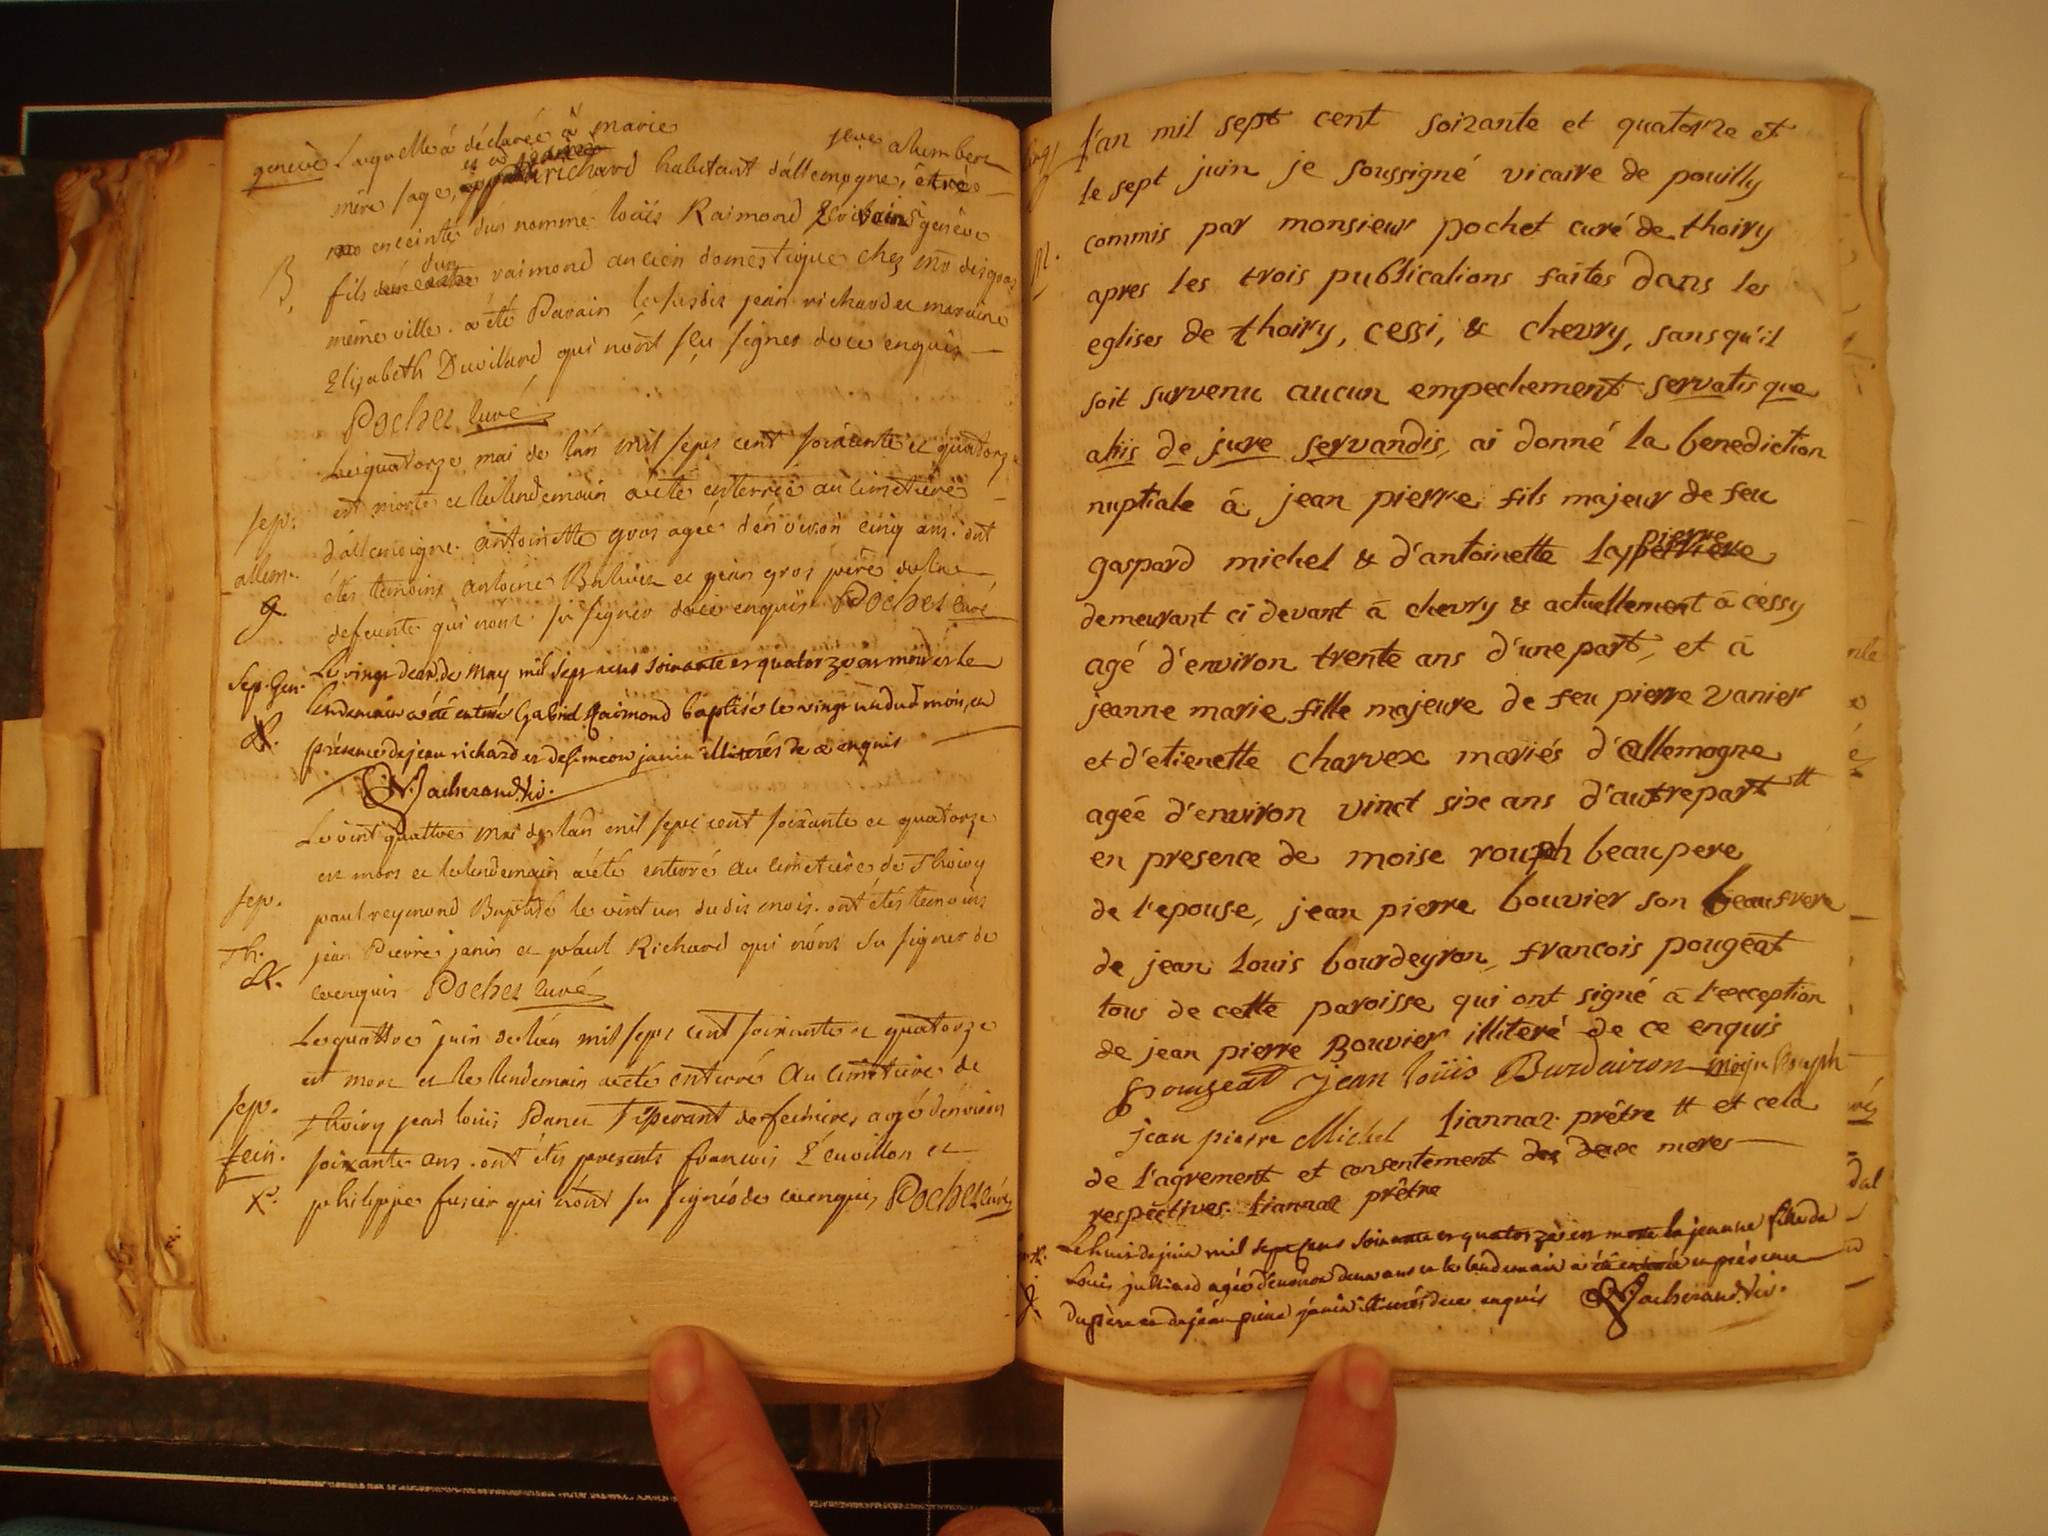 genève Laquelle a déclarée à marie jeve alumbert
mère sage, richard habitant d'allemogne, être
enceinte d'un nommé loüis Raimond genève
fils d'un raimond ancien domestique chez mr
même ville. a été Parain le susdit jean richard et maraine
Elizabeth Duvillard qui n'ont sçu signer de ce enquis
B.
Pochet curé
Le quatorze mai de l'an mil sept cent soixante et quatorze
est morte et le lendemain a été enterrée au cimetière
sep. d'allemoigne. antoinette gros agée d'environ cinq ans. ont
allem. étés temoins antoine et jean gros père de la
defunte qui n'ont su signer de ce enquis Pochet curé
Sep. Gen. Le vingt deux de May mil sept cens soixante et quatorze est mort et le
lendemain a été enterré Gabriel Raimond baptisé le vingt un dud mois, en
présence de jean richard et de simeon janin illiterés de ce enquis
Vacherand. vic.
Le vint quattre Mai de l'an mil sept cent soixante et quatorze
est mort et le lendemain a été enterré au cimetière de Thoiry
sep. paul reymond Baptisé le vint un du dit mois. ont étés temoins
Th. jean Pierre janin et paul Richard qui n'ont su signer de
ce enquis Pochet curé
Le quattre juin de l'an mil sept cent soixante et quatorze
est mort et le lendemain a été enterré au cimetière de
sep. Thoiry jean louis Danet de fechieres agé d'environ
soixante ans. ont étés presents francois et
philippe fusier qui n'ont su signé de ce enquis Pochet curé
l'an mil sept cent soixante et quatorze et
le sept juin je soussigné vicaire de pouilly
M. commis par monsieur pochet curé de thoiry
apres les trois publications faites dans les
eglises de thoiry, cessi, & chevry, sans qu'il
soit survenu aucun empechement servatis que
aliis de jure servandis, ai donné la benediction
nuptiale à jean pierre fils majeur de feu
gaspard michel & d'antoinette lapierre
demeurant ci devant à chevry & actuellement à cessy
agé d'environ trente ans d'une part, et à
jeanne marie fille majeure de feu pierre vanier
et d'etienette charvex mariés d'allemogne
ageé d'environ vinct six ans d'autre part #
en presence de moise rouph beaupere
de l'epouse, jean pierre bouvier son beaufrere
de jean louis bourdeyron, francois pougeat
tous de cette paroisse qui ont signé à l'exception
de jean pierre Bouvier illiteré de ce enquis
pougeat jean loüis Burdairon moise Rouph
jean pierre Michel liannaz. prêtre # et cela
de l'agrement et consentement des deux meres
respectives. liannaz prêtre
Le huit de juin mil sept cens soixante et quatorze est morte la jeanne fille de
Louis julliard agée d'environ deux ans et le lendemain a été enterrée en présence
du père et de jean pierre janin illiterés de ce enquis Vacherand. vic.